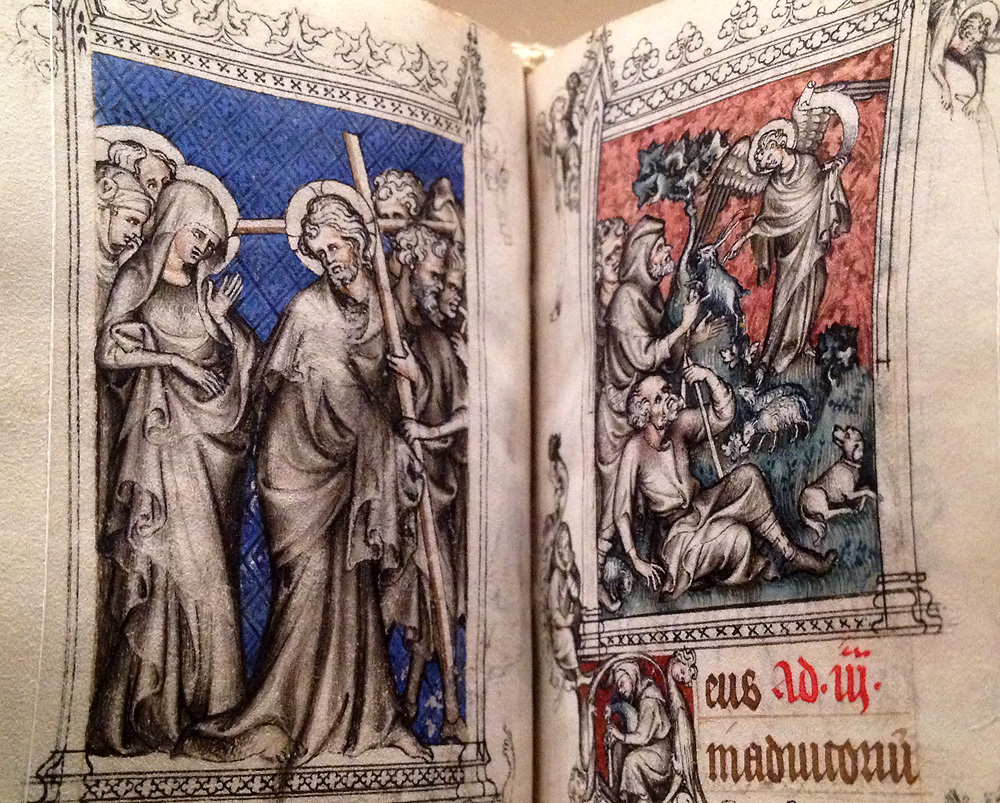 Deus Ad · iij ·
in adiutoriū